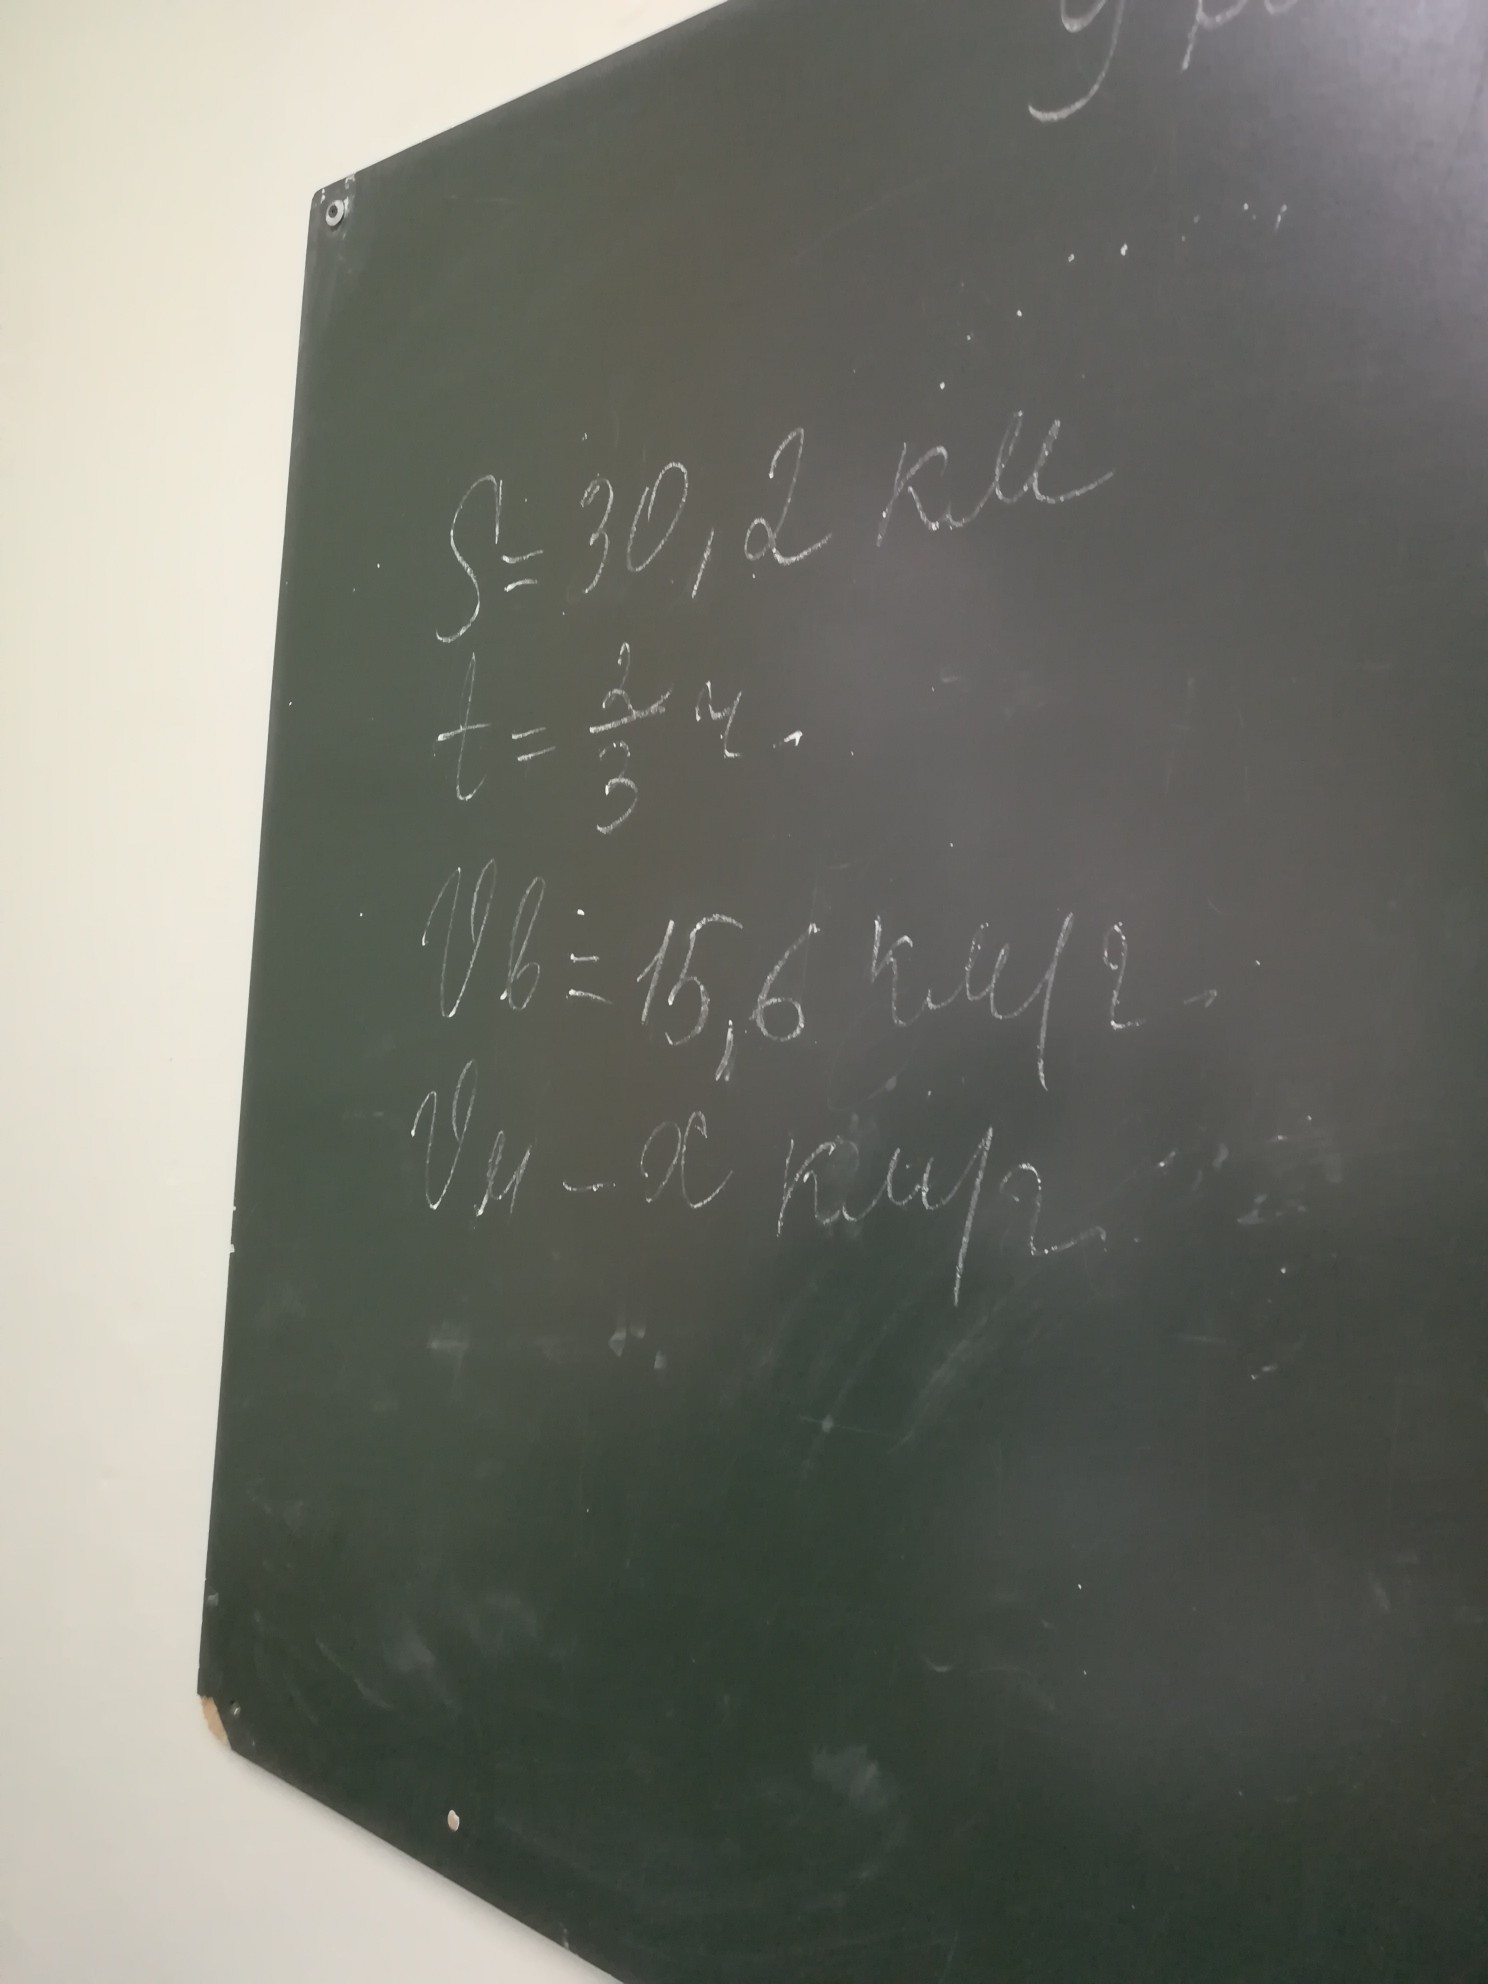 S=30,2 км
t=2/3 ч.
Vв=15,6 км/ч.
Vм - x км/ч.